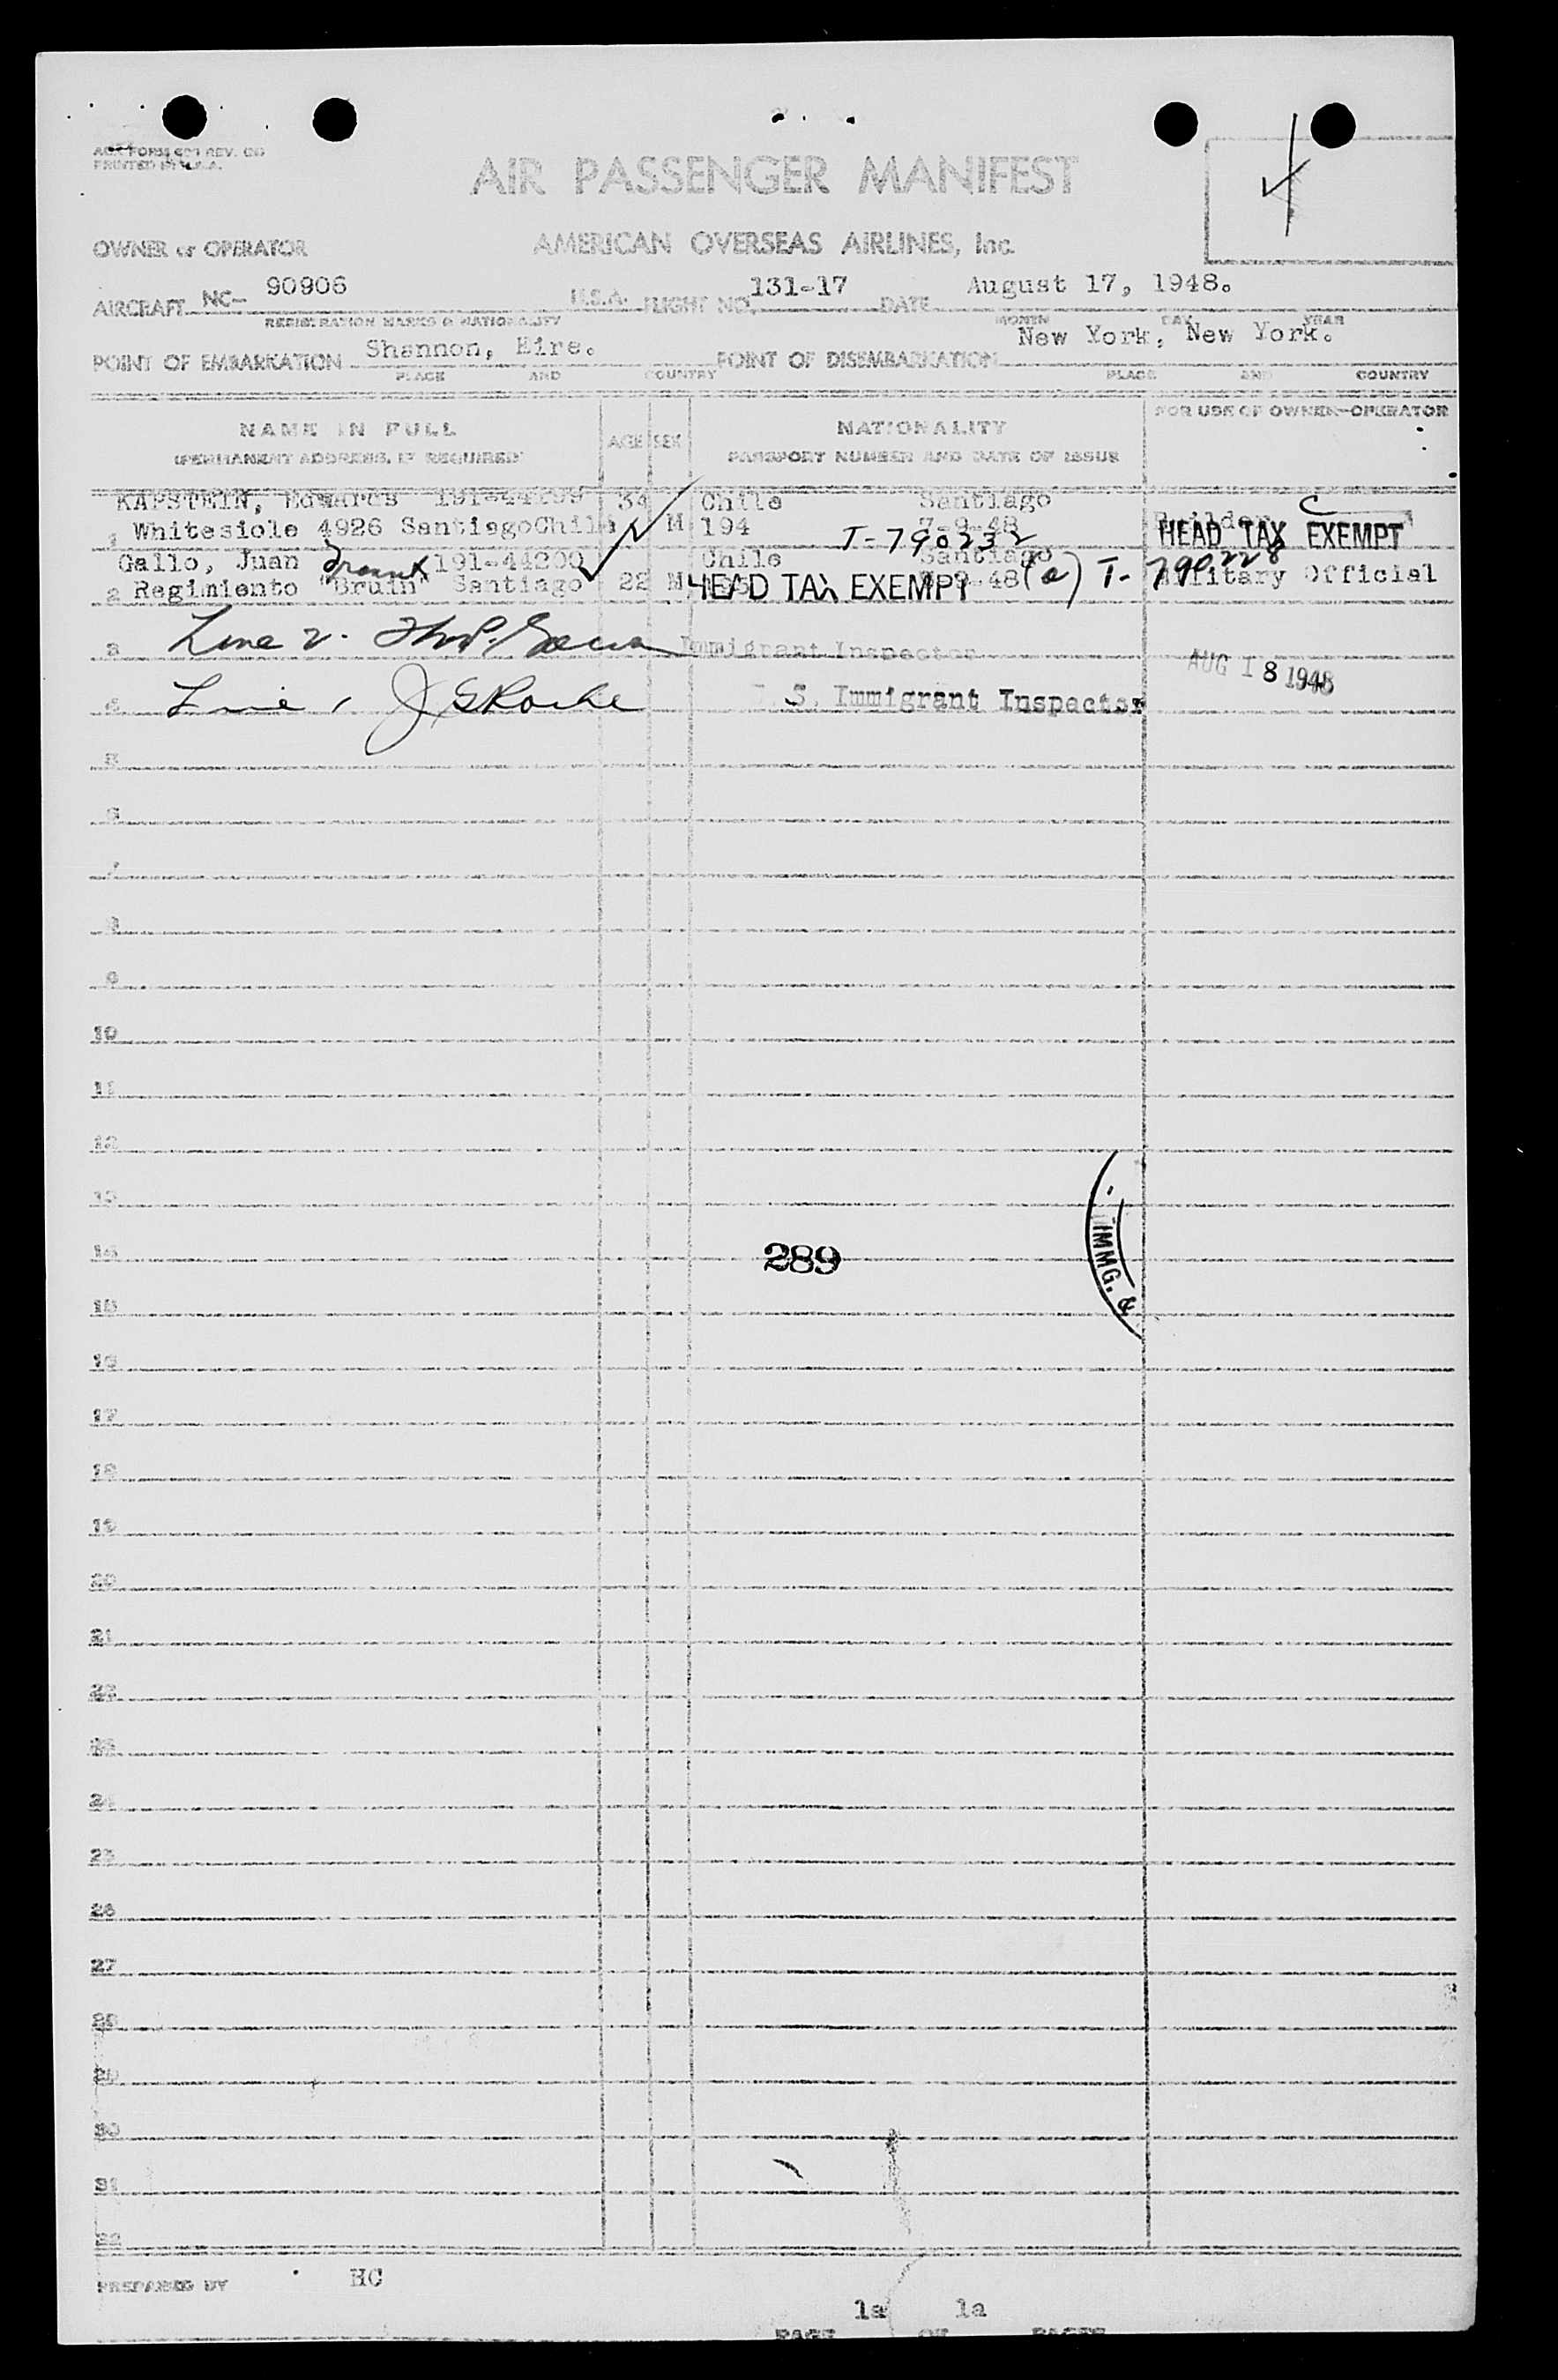 PRINTED IN U.S.A.
AIR PASSENGER MANIFEST
OWNER or OPERATOR AMERICAN OVERSEAS AIRLINES, Inc.
AIRCRAFT NC- 90906 U.S.A. FLIGHT NO. 131-17 DATE August 17, 1948.
REGISTRATION MARKS & NATIONALITY MONTH DAY YEAR
POINT OF EMBARKATION Shannon, Eire. POINT OF DISEMBARKATION New York, New York.
PLACE AND COUNTRY PLACE AND COUNTRY
NAME IN FULL AGE SEX NATIONALITY FOR USE OF OWNER-OPERATOR
(PERMANENT ADDRESS, IF REQUIRED) PASSPORT NUMBER AND DATE OF ISSUE
KAPSTEIN, Edwardo 34 Chile Santiago C
1 Whitesiole 4926 SantiagoChile M 194 7-9-48 T-790232 Builder HEAD TAX EXEMPT
Gallo, Juan 191-44200 Chile Santiago
2 Regimiento "Bruin" Santiago 22 M HEAD TAX EXEMPT 9-48 (a) T-790228 Military Official
3 Line 2. Immigrant Inspector AUG 18 1948
4 Line 1 J S Roche U. S. Immigrant Inspector
5
6
7
8
9
10
11
12
13
IMMG. &
14 289
15
16
17
18
19
20
21
22
23
24
25
26
27
28
29
30
31
32
PREPARED BY HC
1a 1a
PAGE OF PAGES